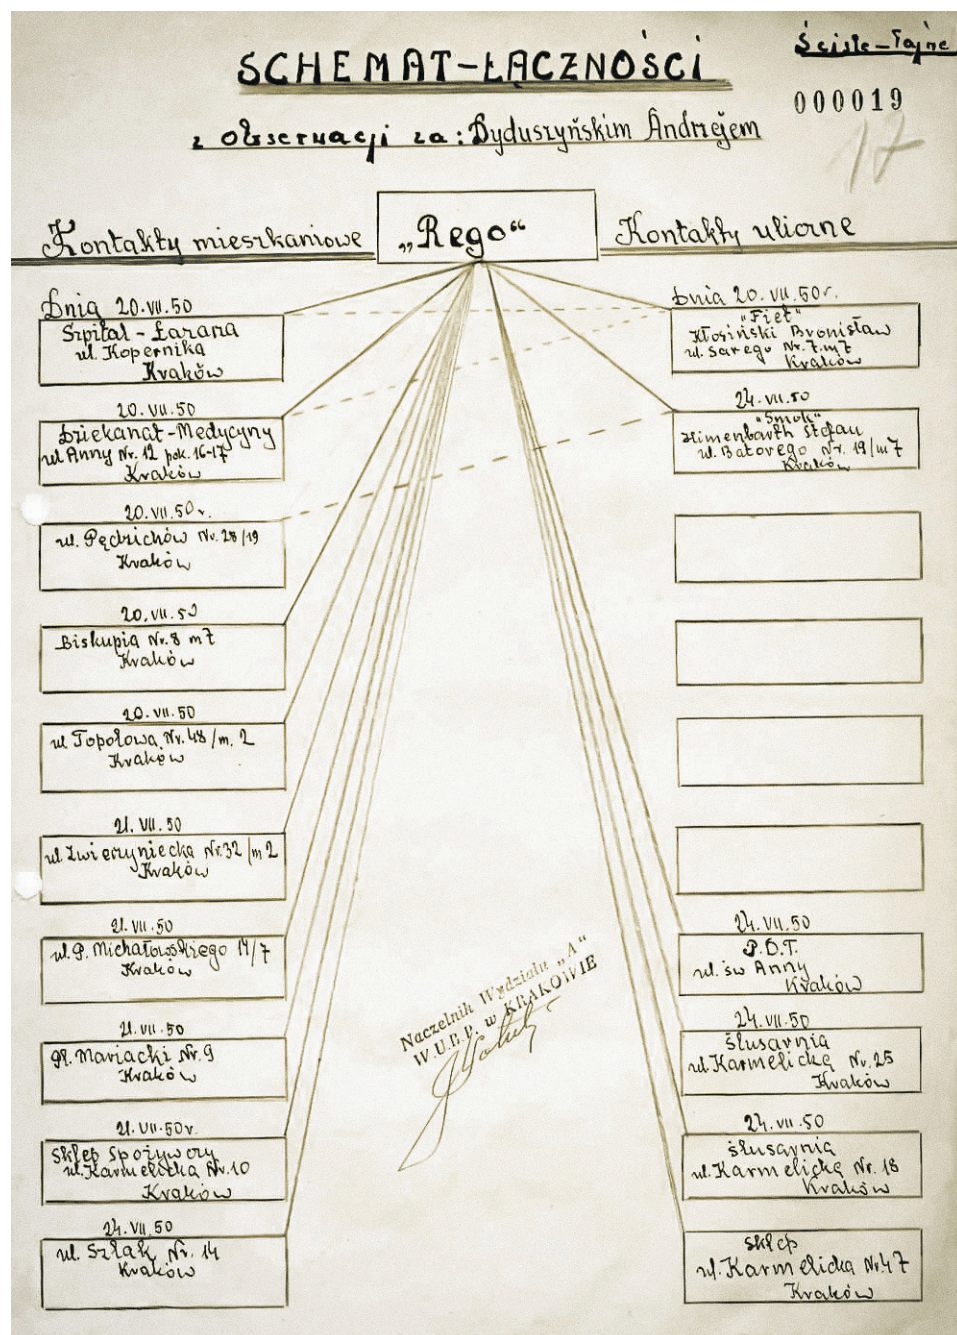 Ściśle-Tajne
SCHEMAT-ŁĄCZNOŚCI
000019
17
z obserwacji za: Dyduszyńskim Andrzejem
Kontakty mieszkaniowe
„Rego“
Kontakty uliczne
Dnia 20.VII.50
Szpital-Łazarza
ul. Kopernika
Kraków
20.VII.50
Dziekanat-Medycyny
ul Anny Nr. 12 pok. 16-17
Kraków
20.VII.50r.
ul. Pędzichów Nr. 28/19
Kraków
20.VII.50
Biskupia Nr. 8 m 7
Kraków
20.VII.50
ul Topolowa Nr. 48/m. 2
Kraków
21.VII.50
ul. Zwierzyniecka Nr. 32/m 2
Kraków
21.VII.50
ul. P. Michałowskiego 14/7
Kraków
21.VII.50
Pl. Mariacki Nr. 9
Kraków
21.VII.50r.
Sklep Spożywczy
ul. Karmelicka Nr. 10
Kraków
24.VII.50
ul. Szlak Nr. 14
Kraków
Dnia 20.VII.50r.
"Fiet"
Kłosiński Bronisław
ul. Sarego Nr. 7. m 7
Kraków
24.VII.50
"Smok"
Stefan
ul. Batorego Nr. 19/m 7
Kraków
24.VII.50
P.D.T.
ul. św Anny
Kraków
24.VII.50
Ślusarnia
ul. Karmelicka Nr. 25
Kraków
24.VII.50
Ślusarnia
ul. Karmelicka Nr. 18
Kraków
Sklep
ul. Karmelicka Nr 47
Kraków
Naczelnik Wydziału „A“
W.U.B.P. w KRAKOWIE